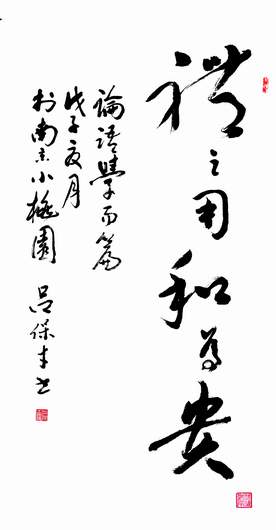 禮之用和為貴
論語學而篇
戊子夏月
於南京小桃園
呂保丰书